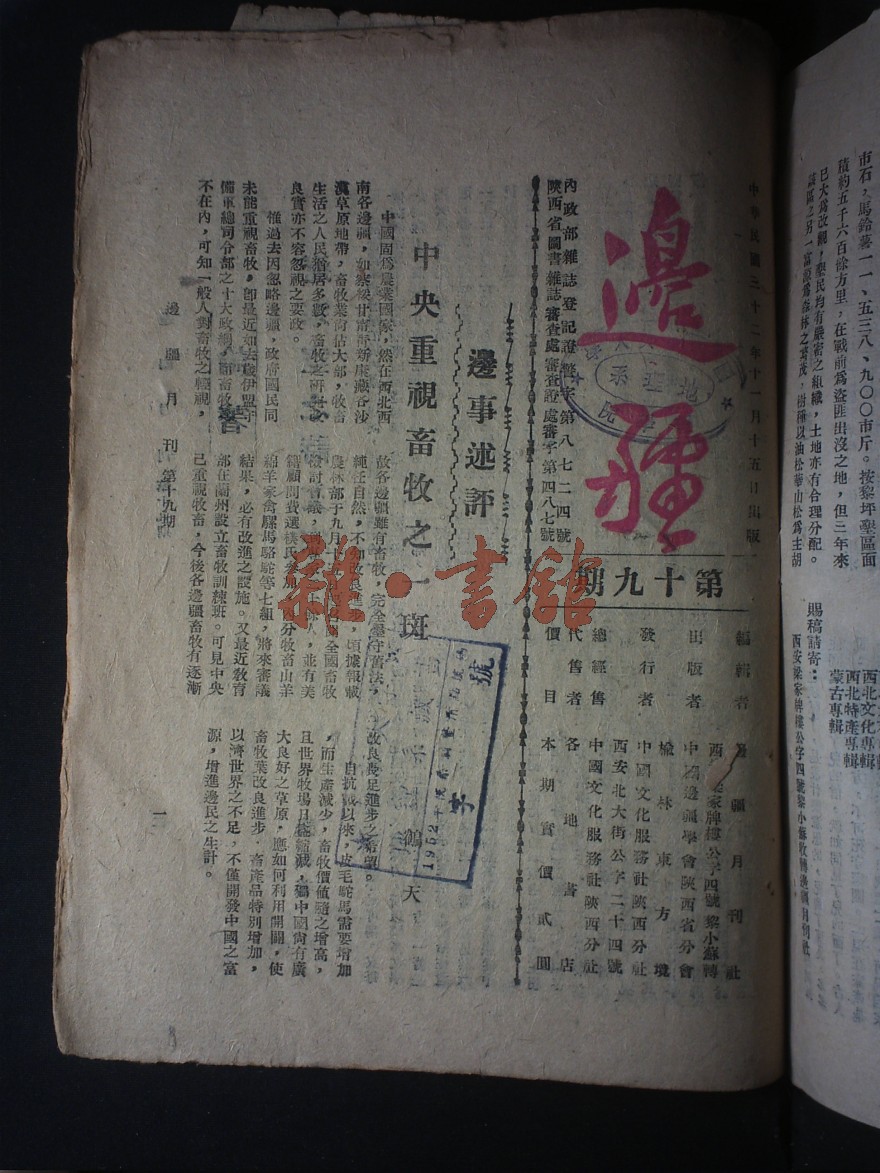 中華民國三十二年十一月十五日出版
邊疆
第十九期
編輯者 邊疆月刊社
西安梁家牌樓公字四號黎小蘇轉
出版者 中國邊疆學會陝西省分會
榆林東方壔
發行者 中國文化服務社陝西分社
西安北大街公字二十四號
總經售 中國文化服務社陝西分社
代售者 各地書店
價目 本期實價貳圓
內政部雜誌登記證警字第八七二四號
陝西省圖書雜誌審查處審查證處審字第四八七號
邊事述評
中央重視畜牧之一斑
鶴天
中國固為農業國家,然在西北西
南各邊疆,如察綏甘青寧新康藏各沙
漠草原地帶,畜牧業尚佔大部,牧畜
生活之人民猶居多數,畜牧之研討改
良實亦不容忽視之要政。
惟過去因忽略邊疆,政府國民同
未能重視畜牧,卽最近如去歲伊盟守
備軍總司令部之十大政綱,而畜牧竟
不在內,可知一般人對畜牧之輕視,
故各邊疆雖有畜牧,完全墨守舊法,
純任自然,不加改良進步,頃據報載
農林部於九月十五日召開全國畜牧
檢討會議,
籍顧問費選樸氏參加,
綿羊家禽騾馬駱駝等七組,將來審議
結果,必有改進之設施。又最近敎育
部在蘭州設立畜牧訓練班。可見中央
已重視牧畜,今後各邊疆畜牧有逐漸
改良長足進步之希望。
自抗戰以來,皮毛駝馬需要增加
,而生產減少,畜牧價值隨之增高,
且世界牧場日趨縮減,獨中國尚有廣
大良好之草原,應如何利用開闢,使
畜牧業改良進步,畜產品特別增加,
以濟世界之不足,不僅開發中國之富
源,增進邊民之生計。
邊疆月刊 第十九期
一
地理系
院
1952年度
字
號
雜·書館
市石,馬鈴薯一一、五三八、九〇〇市斤。按黎坪墾區面
積約五千六百餘方里,在戰前為盜匪出沒之地,但三年來
已大為改觀,墾民均有嚴密之組織,土地亦有合理分配。
該區之另一富源為森林之茂,樹種以油松華山松為主胡
西北文化專輯
西北特產專輯
蒙古專輯
賜稿請寄:
西安梁家牌樓公字四號黎小蘇收轉邊疆月刊社